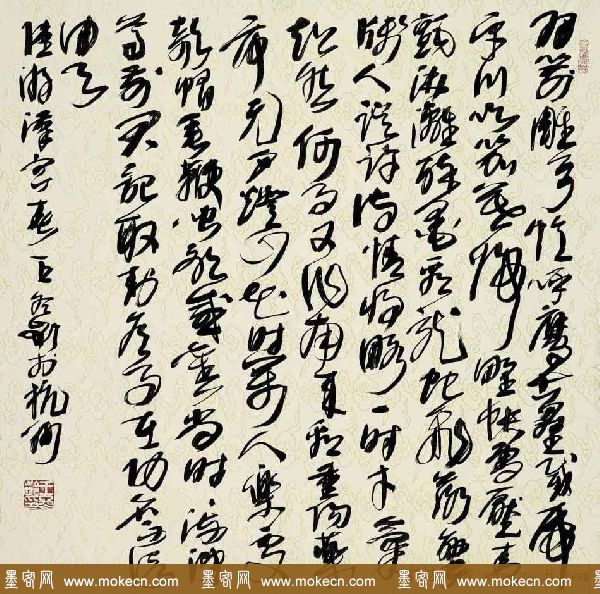 羽箭雕弓忆呼鹰古垒截虎
平川吹笳暮归野帐雪压青
毡淋漓醉墨看龙蛇飞落蛮
笺人误许诗情将略一时才气
超然何事又作南来看重阳药
市元夕灯山花时万人乐处
欹帽垂鞭闻歌感旧尚时流涕
尊前君记取封侯事在功名不信
由天
陆游汉宫春王冬龄于杭州
墨客网 www.mokecn.com 墨客网 www.mokecn.com 墨客网 www.mokecn.com